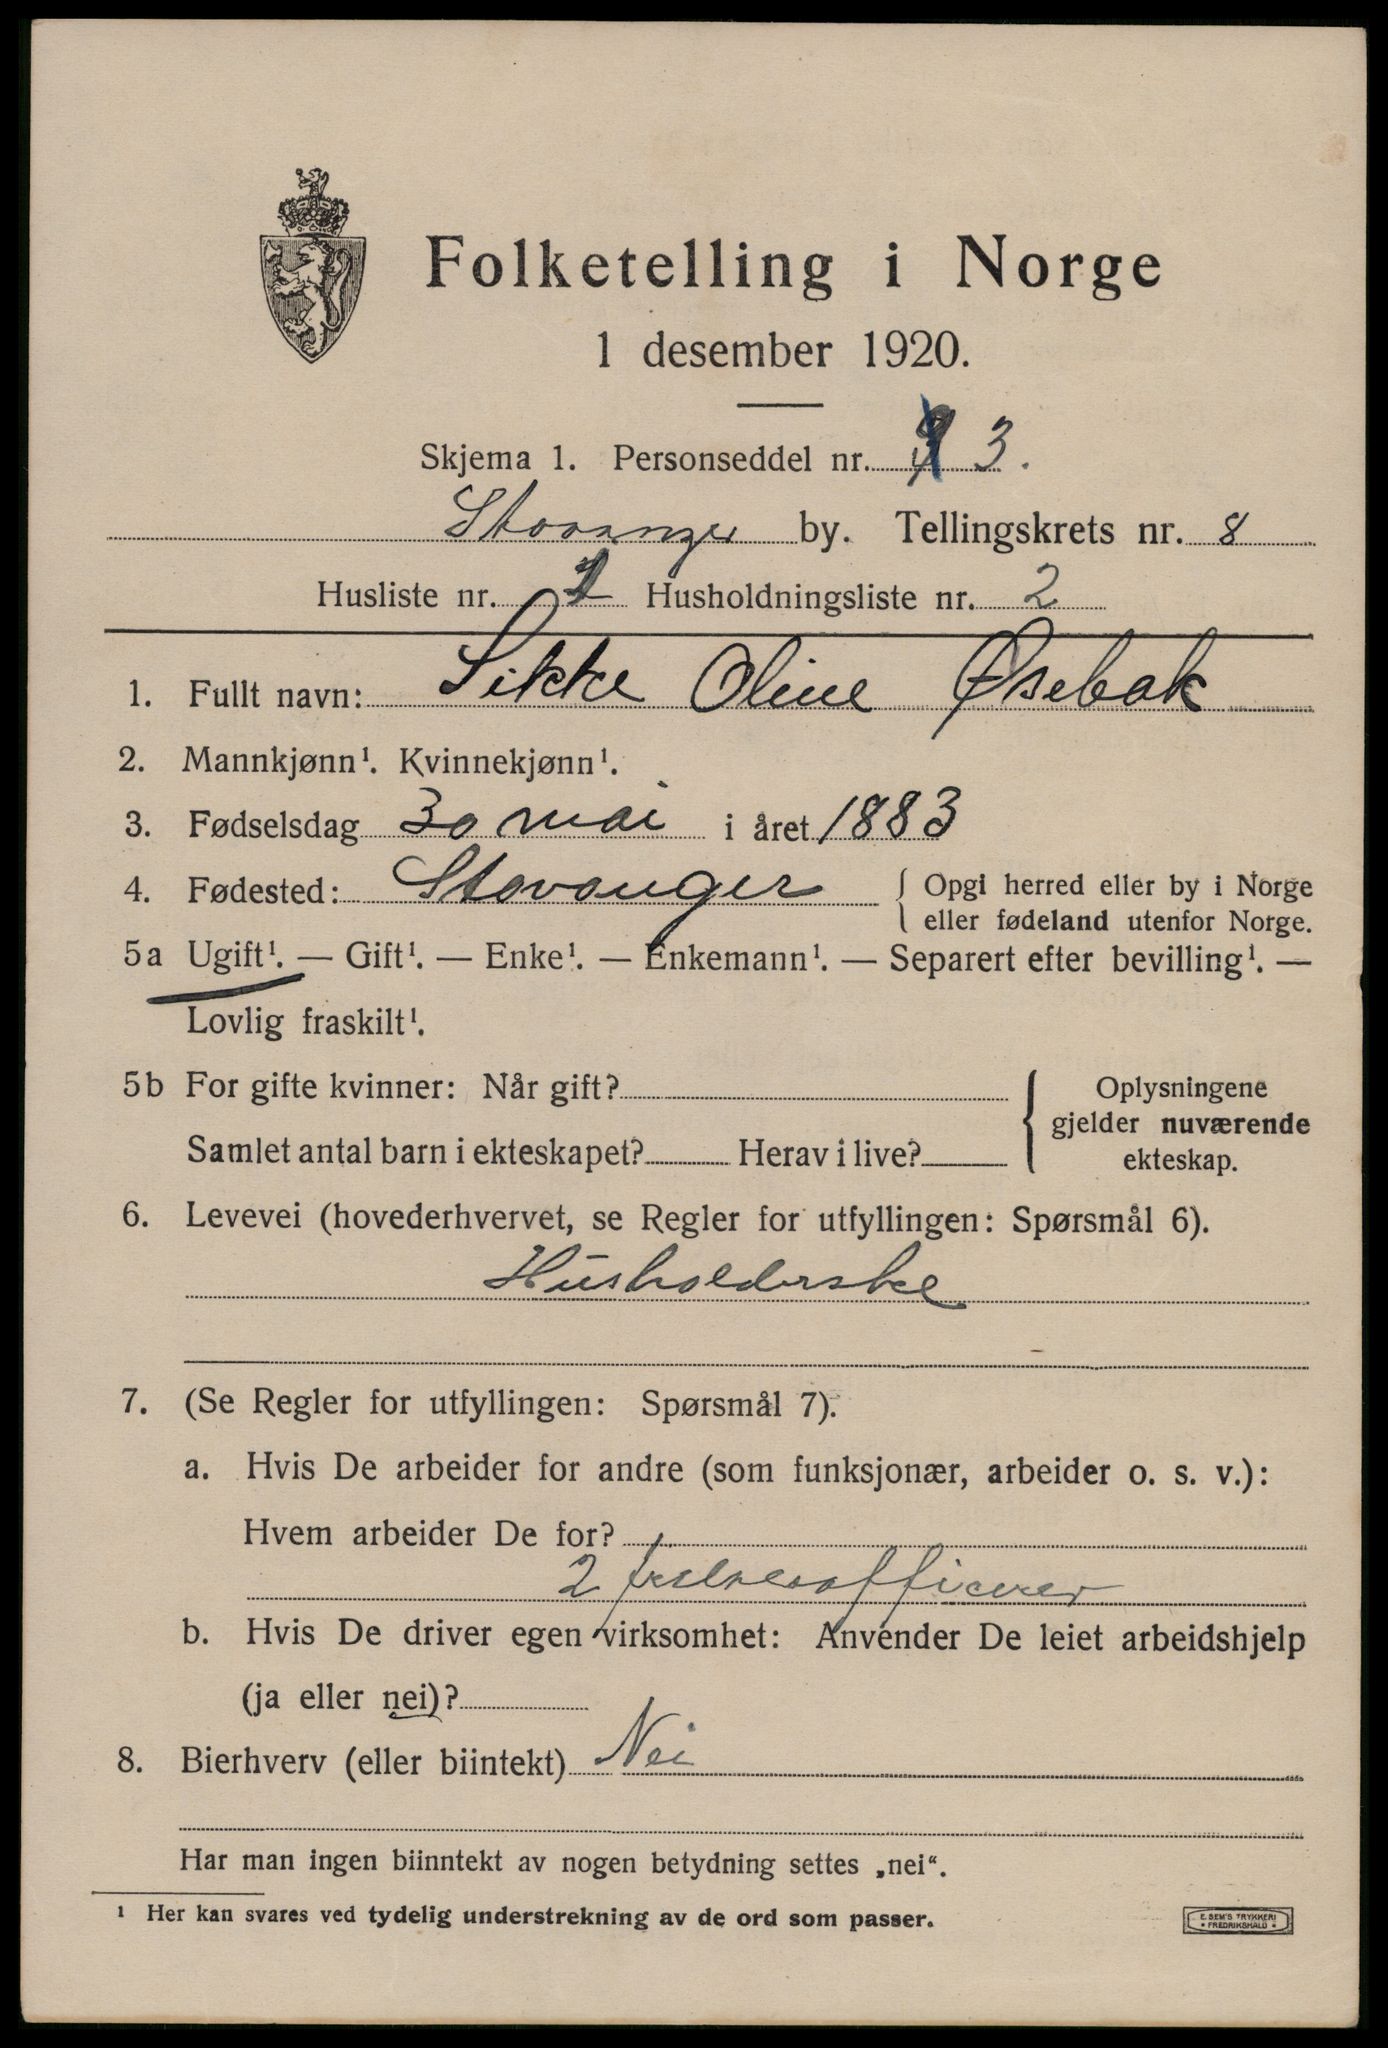 Folketelling i Norge
1 desember 1920.
Skjema 1. Personseddel nr. 3.
Stavanger by. Tellingskrets nr. 8
Husliste nr. 1 Husholdningsliste nr. 2
1. Fullt navn: Sikke Oline Øsebak
2. Mannkjønn¹. Kvinnekjønn¹.
3. Fødselsdag 30 mai i året 1883
4. Fødested: Stavanger { Opgi herred eller by i Norge
eller fødeland utenfor Norge.
5a Ugift¹. — Gift¹. — Enke¹. — Enkemann¹. — Separert efter bevilling¹. —
Lovlig fraskilt¹.
5b For gifte kvinner: Når gift?
Samlet antal barn i ekteskapet? Herav i live?
{ Oplysningene
gjelder nuværende
ekteskap.
6. Levevei (hovederhvervet, se Regler for utfyllingen: Spørsmål 6).
Husholderske
7. (Se Regler for utfyllingen: Spørsmål 7).
a. Hvis De arbeider for andre (som funksjonær, arbeider o. s. v.):
Hvem arbeider De for?
2 frelsesofficerer
b. Hvis De driver egen virksomhet: Anvender De leiet arbeidshjelp
(ja eller nei)?
8. Bierhverv (eller biintekt) Nei
Har man ingen biinntekt av nogen betydning settes „nei“.
¹ Her kan svares ved tydelig understrekning av de ord som passer.
E. SEM'S TRYKKERI
• FREDRIKSHALD •